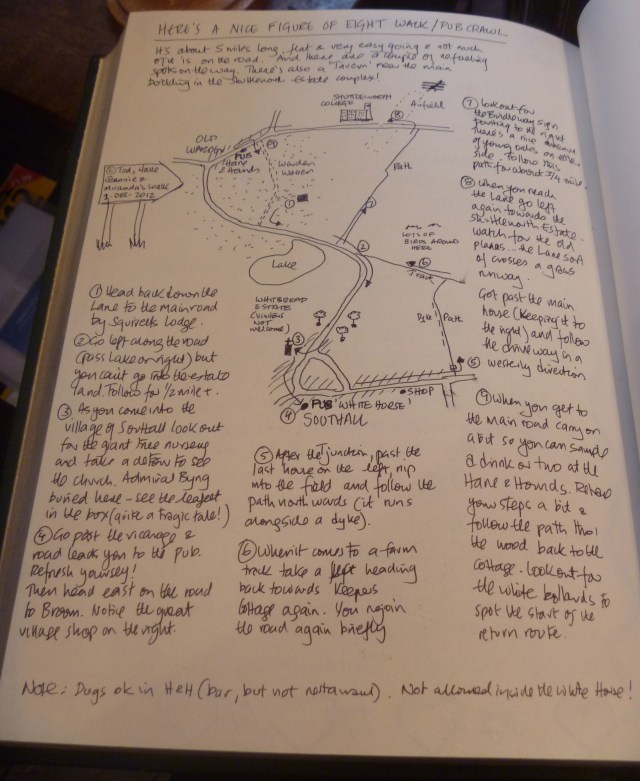 HERE'S A NICE FIGURE OF EIGHT WALK/PUBCRAWL
It's about 5 miles long, flat & very easy going & not much
of it is on the road. And there are a couple of refueling
spots on the way. There's also a 'Tavern' near the main
building in the Shuttleworth Estate complex!
SHUTTLEWORTH
COLLEGE
Airfield
8
OLD
WARDEN
9
PUB
'Hare
& Hounds'
Warden
Warren
Path
1
7
2-DEC-2012
2
LOTS OF
BIRDS AROUND
HERE
6
Track
Lake
WHITBREAD
ESTATE
(VISITORS
NOT
WELCOME)
Dyke
Path
3
5
SHOP
PUB 'WHITE HORSE'
4
SOUTHALL
① Head back down the
Lane to the main road
by Squirrels Lodge.
② Go left along the road
(pass Lake on right) but
you can't go into the estate
land. Follow for 1/2 mile +.
③ As you come into the
village of Southall look out
for the giant tree nursery
and take a detour to see
the church. Admiral Byng
buried here - see the leaflet
in the box (quite a tragic tale!)
④ Go past the vicarage &
road leads you to the pub.
Refresh yourself!
Then head east on the road
to Broom. Notice the great
village shop on the right.
⑤ After the Junction, past the
last house on the left, nip
into the field and follow the
path northwards (it runs
alongside a dyke).
⑥ When it comes to a farm
track take a left heading
back towards Keepers
Cottage again. You rejoin
the road again briefly
⑦ Look out for
the Bridleway sign
pointing to the right
there's a nice
of young oaks on either
side. Follow this
path for about 3/4 mile.
⑧ When you reach
the Lane go left
again towards the
Shuttleworth Estate.
Watch for the old
planes... the Lane sort
of crosses a grass
runway.
Got past the main
house (keeping it to
the right) and follow
the driveway in a
westerly direction
⑨ When you get to
the main road carry on
a bit so you can sample
a drink or two at the
Hare & Hounds. Retrace
your steps a bit &
follow the path thro'
the wood back to the
cottage. Look out for
the white bollards to
spot the start of the
return route.
Note: Dogs ok in H&H (bar, but not restaurant). Not allowed inside the White Horse!